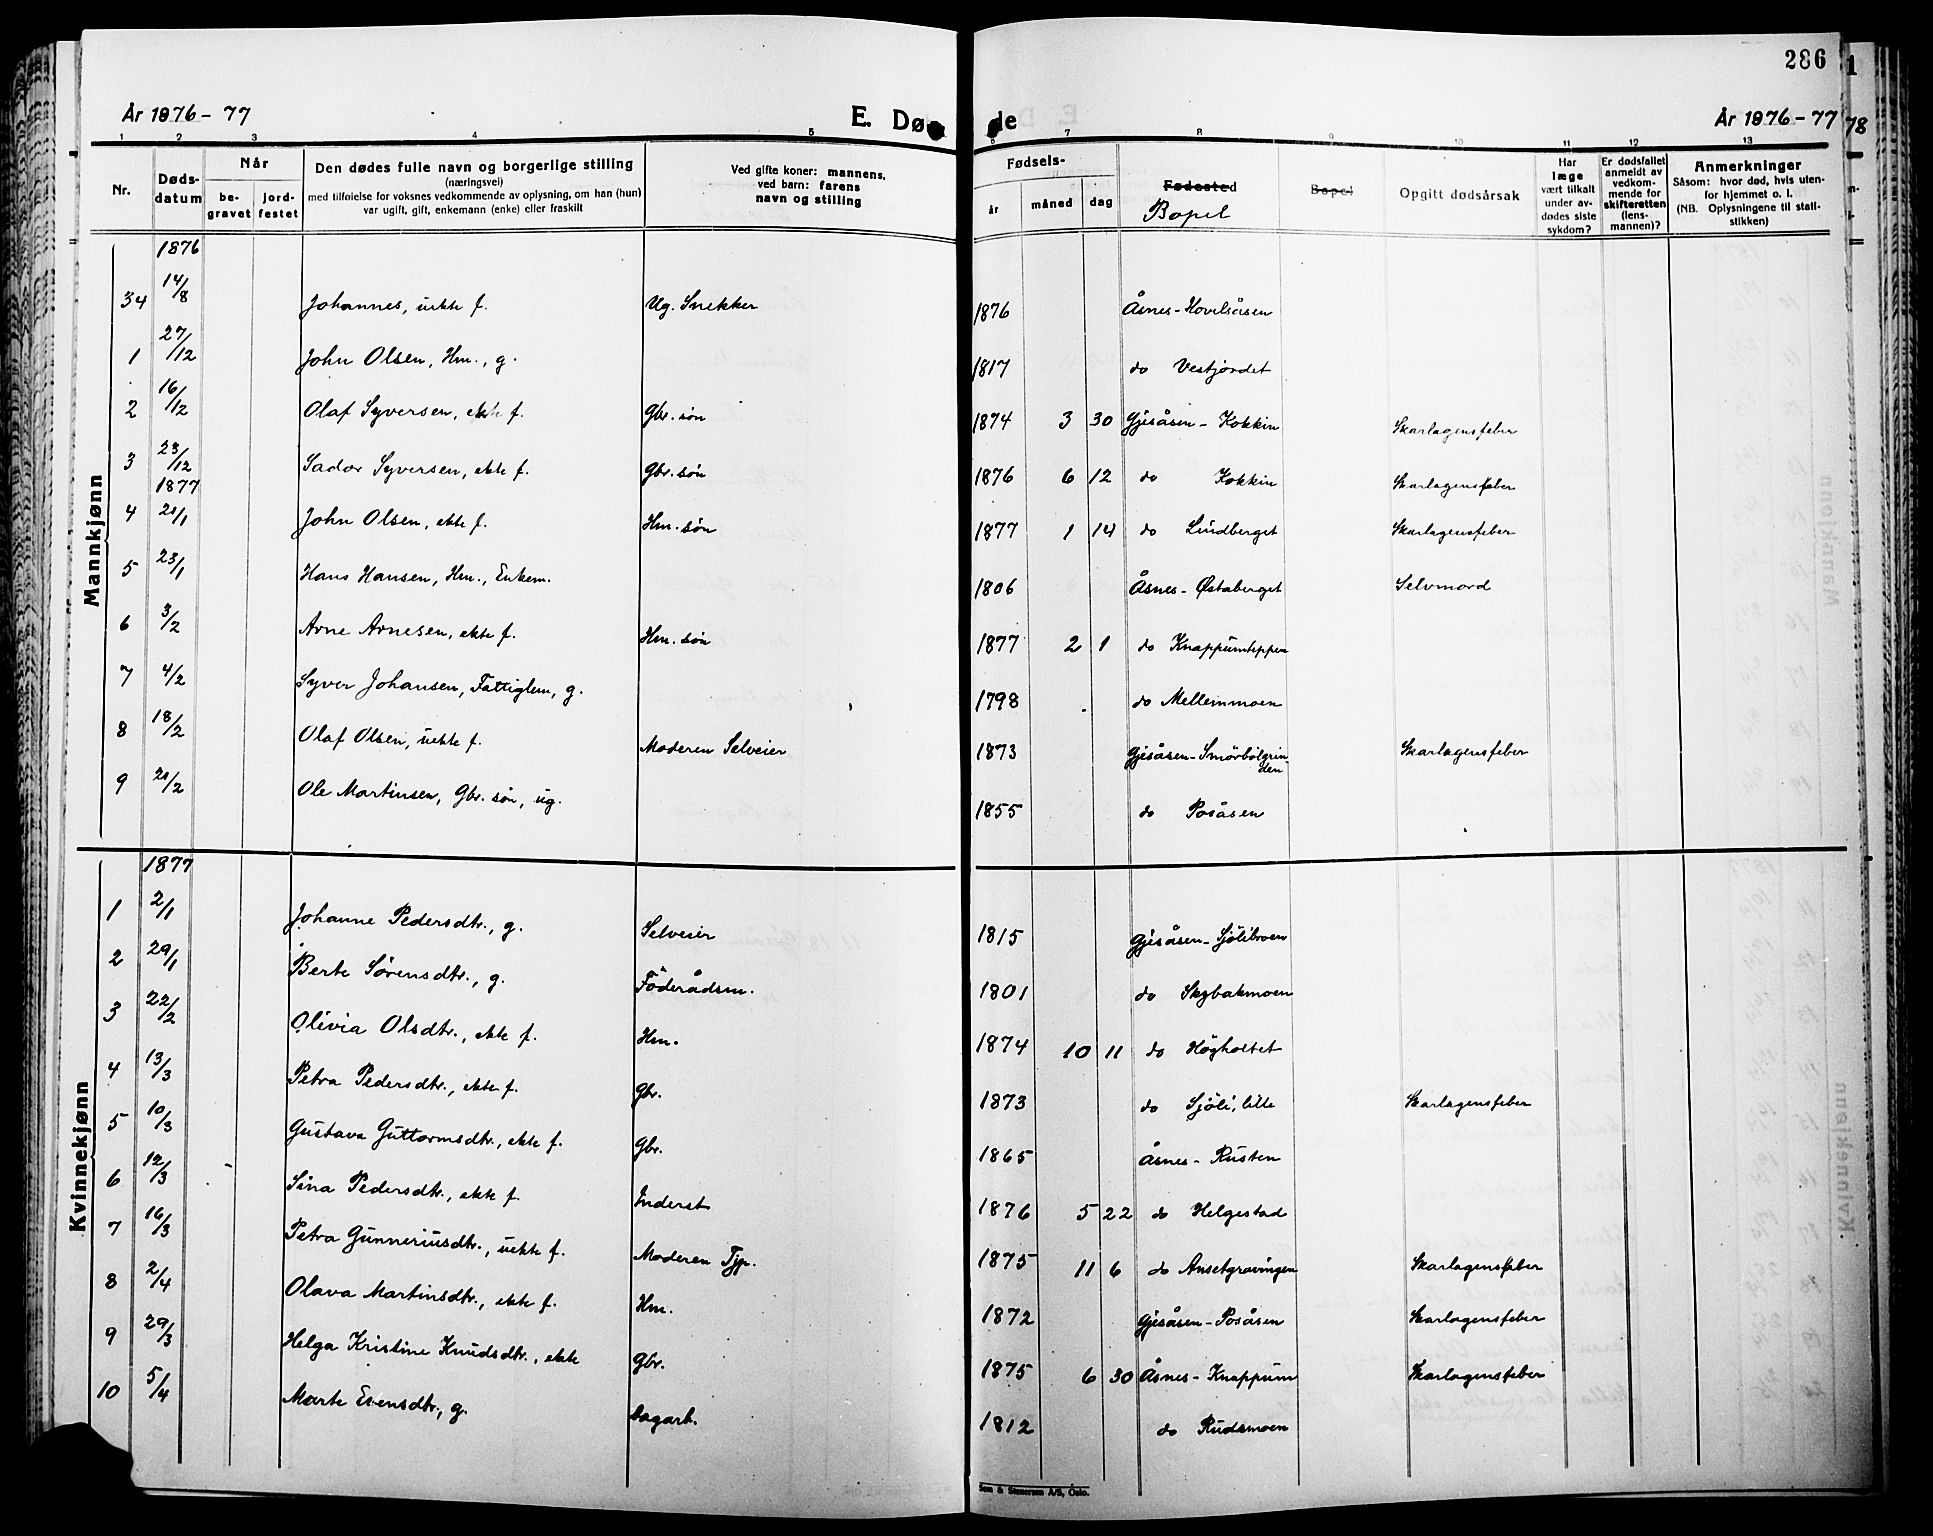 286
1
År 1876-77
E. Dø
de
År 1876-77
78
1 2 3 4 5 6 7 8 9 10 11 12 13
Nr.
Døds-
datum
Når
be-
gravet
jord-
festet
Den dødes fulle navn og borgerlige stilling
(næringsvei)
med tilføielse for voksnes vedkommende av oplysning, om han (hun)
var ugift, gift, enkemann (enke) eller fraskilt
Ved gifte koner: mannens,
ved barn: farens
navn og stilling
Fødsels-
år måned dag
Fødested
Bopel
Bopel
Opgitt dødsårsak
Har
læge
vært tilkalt
under av-
dødes siste
sykdom?
Er dødsfallet
anmeldt av
vedkom-
mende for
skifteretten
(lens-
mannen)?
Anmerkninger
Såsom: hvor død, hvis uten-
for hjemmet o. l.
(NB. Oplysningene til stati-
stikken)
Mannkjønn
1876
34 14/8 Johannes, uekte f. Ug. Snekker 1876 Åsnes-Hovelsåsen
1 27/12 John Olsen, Hm., g. 1817 do Vestjordet
2 16/12 Olaf Syversen, ekte f. Gbr. søn 1874 3 30 Gjesåsen - Kokkin Skarlagensfeber
3 23/12 Sador Syversen, ekte f. Gbr. søn 1876 6 12 do Kokkin Skarlagensfeber
1877
4 21/1 John Olsen, ekte f. Hm. søn 1877 1 14 do Lindberget Skarlagensfeber
5 23/1 Hans Hansen, Hm., Enkem. 1806 Åsnes - Østaberget Selvmord
6 3/2 Arne Arnesen, ekte f. Hm. søn 1877 2 1 do Knappumteppen
7 4/2 Syver Johansen, Fattiglem, g. 1798 do Mellemmoen
8 18/2 Olaf Olsen, uekte f. Moderen Selveier 1873 Gjesåsen-Smörbölgrin-
den Skarlagensfeber
9 21/2 Ole Martinsen, Gbr. søn, ug. 1855 do Posåsen
Kvinnekjønn
1877
1 2/1 Johanne Pedersdtr., g. Selveier 1815 Gjesåsen-Sjölibroen
2 29/1 Berte Sörensdtr., g. Föderådsm. 1801 do Skybakmoen
3 22/2 Olivia Olsdtr., ekte f. Hm. 1874 10 11 do Högholtet
4 13/3 Petra Pedersdtr., ekte f. Gbr. 1873 do Sjöli, lille Skarlagensfeber
5 10/3 Gustava Guttormsdtr., ekte f. Gbr. 1865 Åsnes - Rusten
6 12/3 Sina Pedersdtr., ekte f. Inderst 1876 5 22 do Helgestad
7 16/3 Petra Gunneriusdtr., uekte f. Moderen Tjp. 1875 11 6 do Ansetgravingen Skarlagensfeber
8 2/4 Olava Martinsdtr., ekte f. Hm. 1872 Gjesåsen - Posåsen Skarlagensfeber
9 29/3 Helga Kristine Knudsdtr., ekte Gbr. 1875 6 30 Åsnes - Knappum Skarlagensfeber
10 5/4 Marte Evensdtr., g. Dagarb. 1812 do Rudsmoen
Sem & Stenersen A/S, Oslo.